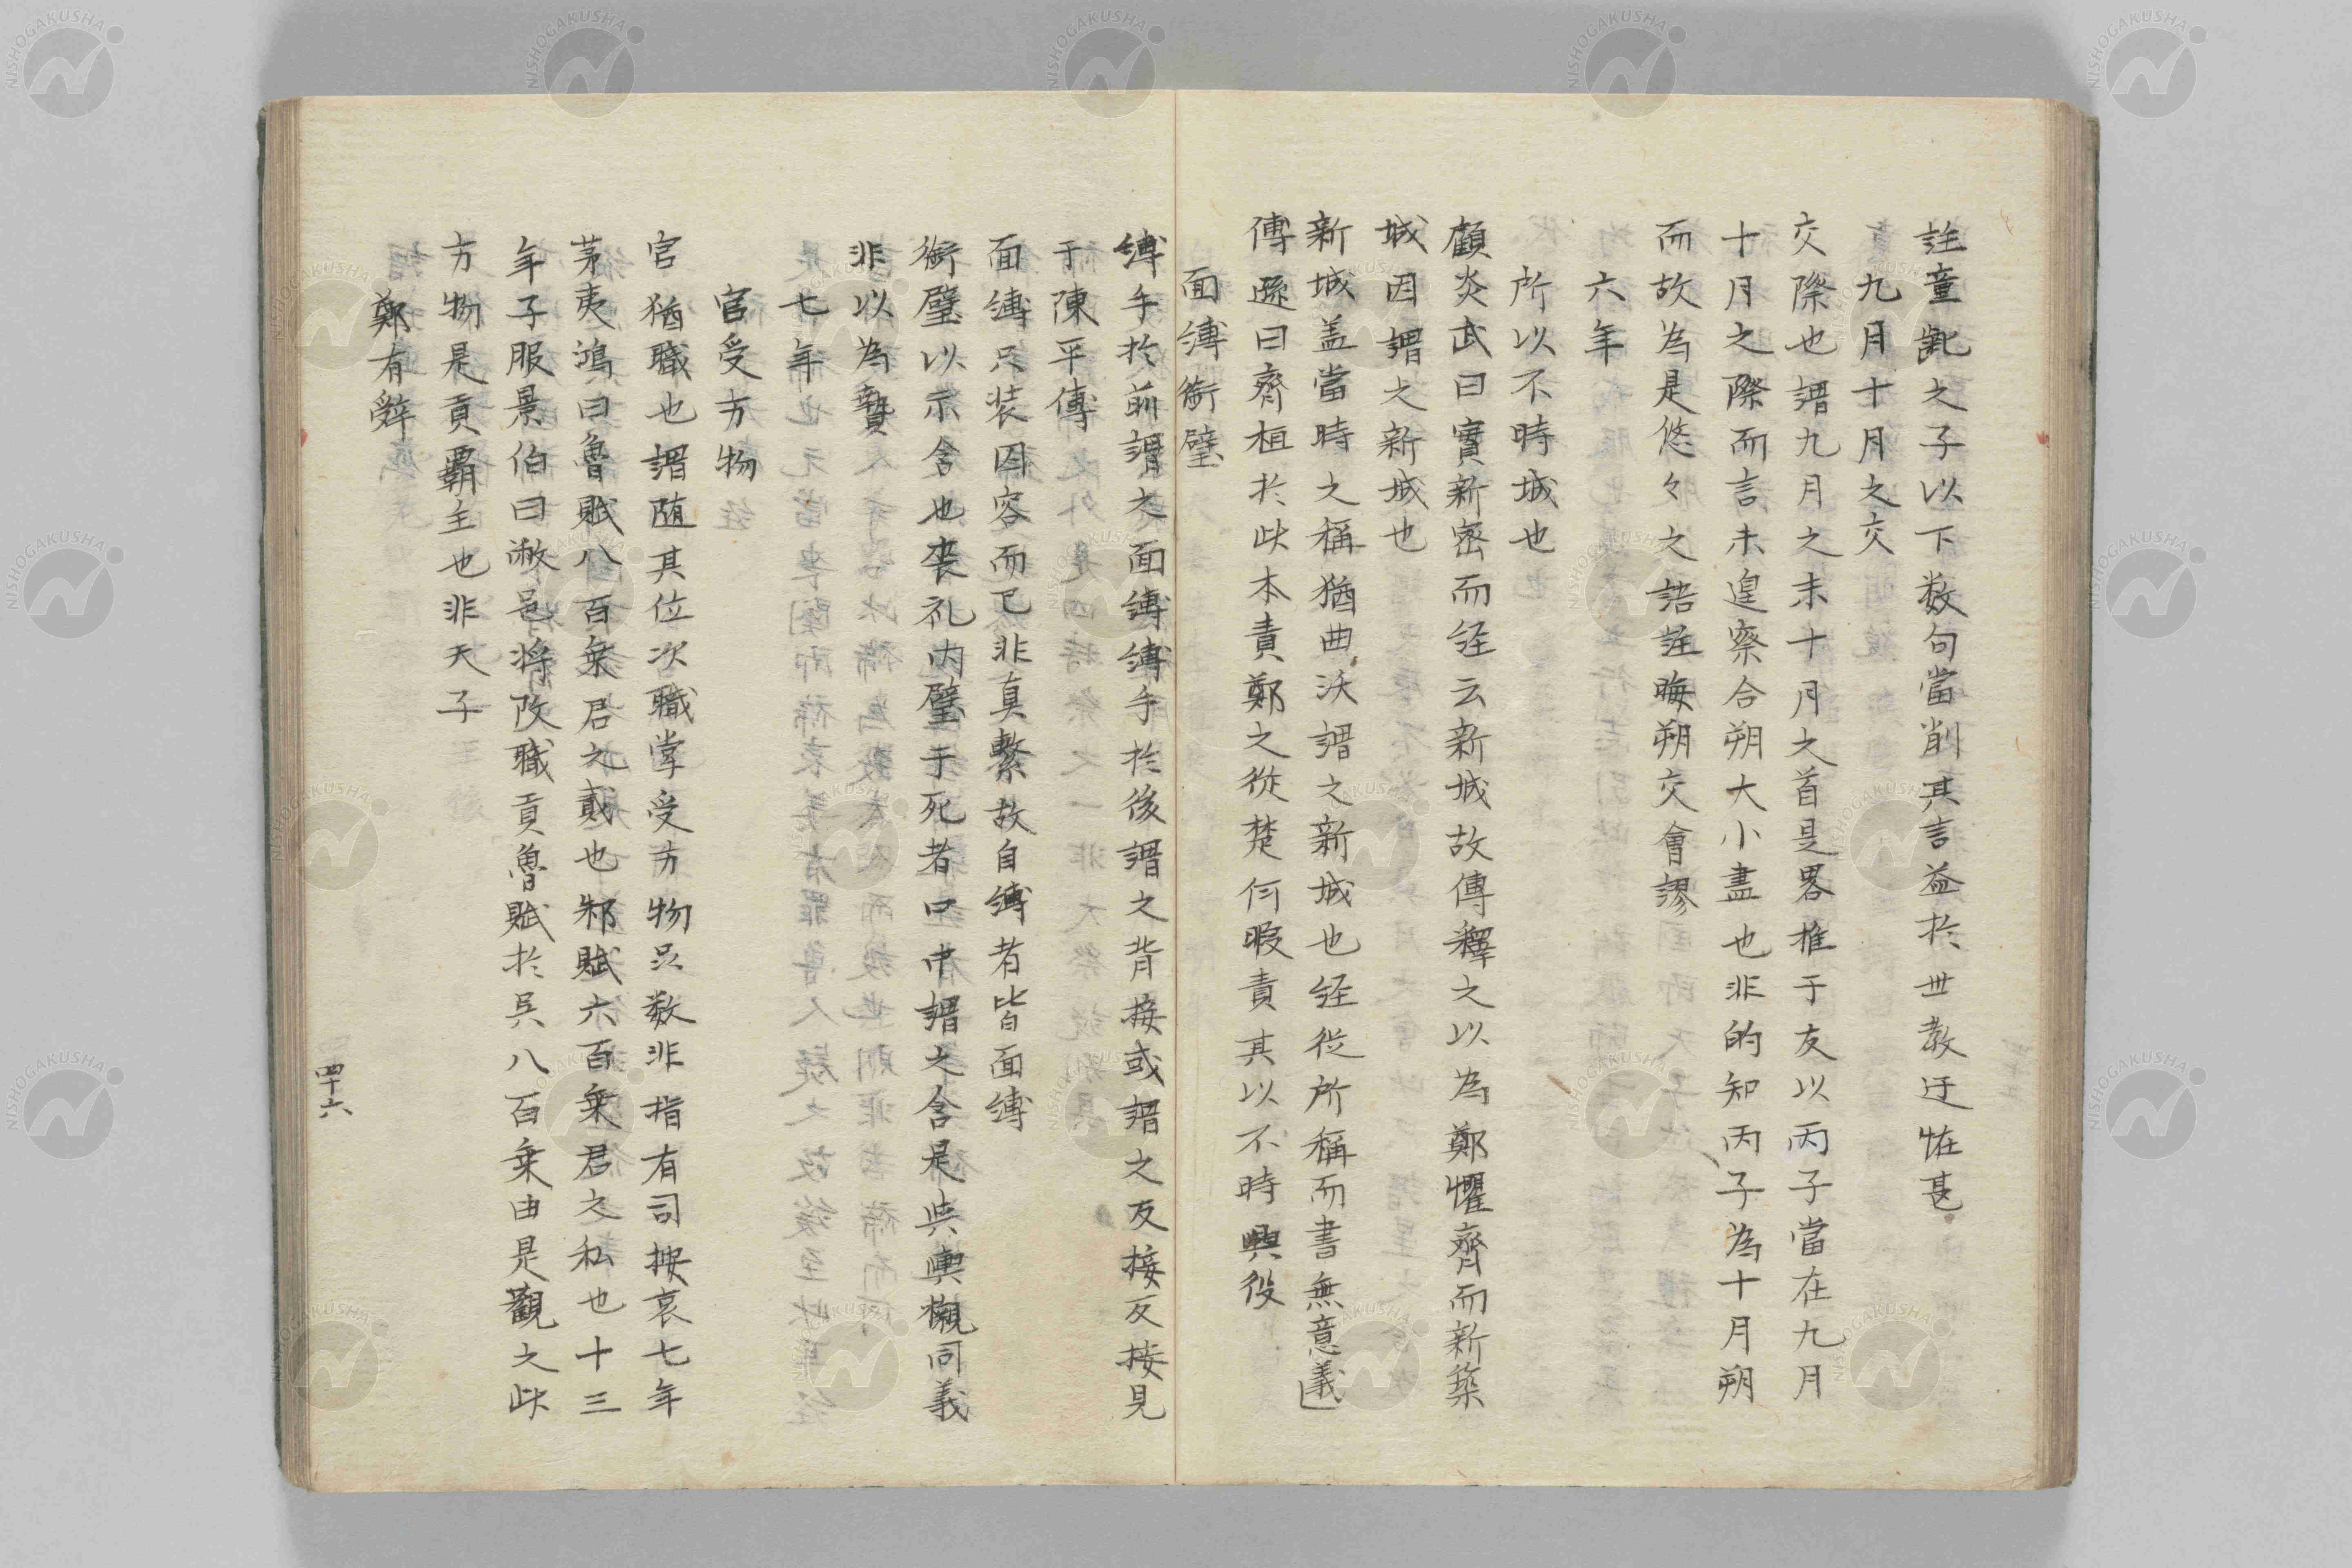 註童齔之子以下数句當削其言益於世教迂怪甚
九月十月之交
交際也謂九月之末十月之首是畧推于友以丙子當在九月
十月之際而言未遑察合朔大小盡也非的知丙子為十月朔
而故為是悠々之語註晦朔交會謬
六年
所以不時城也
顧炎武曰實新密而経云新城故傳釋之以為鄭懼齊而新築
城因謂之新城也
新城盖當時之稱猶曲沃謂之新城也経従所稱而書無意義
傅遜曰齊桓於此本責鄭之從楚何暇責其以不時興役
面縛銜璧
縛手於前謂之面縛縛手於後謂之背接或謂之反接反接見
于陳平傳
面縛只装囚容而已非真繫故自縛者皆面縛
銜璧以示含也喪礼内璧于死者口中謂之含是與輿櫬同義
非以為贄
七年
官受方物
官猶職也謂随其位次職掌受方物品数非指有司按哀七年
茅夷鴻曰魯賦八百乗君之貳也邾賦六百乗君之私也十三
年子服景伯曰敝邑将改職貢魯賦於呉八百乗由是觀之此
方物是貢覇主也非天子
鄭有辤
四十六
NISHOGAKUSHA